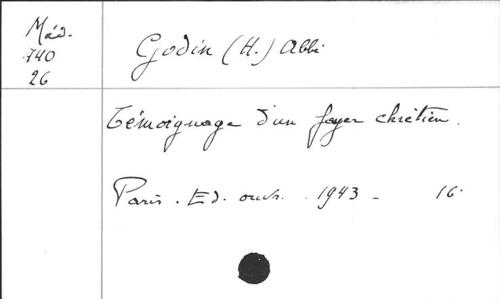 Méd.
740
26
Godin (H.) Abbé
Témoignage d'un foyer chrétien.
Paris. Ed. ouvr. 1943 - 16°